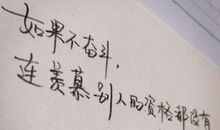 如果不奋斗,
连羡慕别人的资格都没有